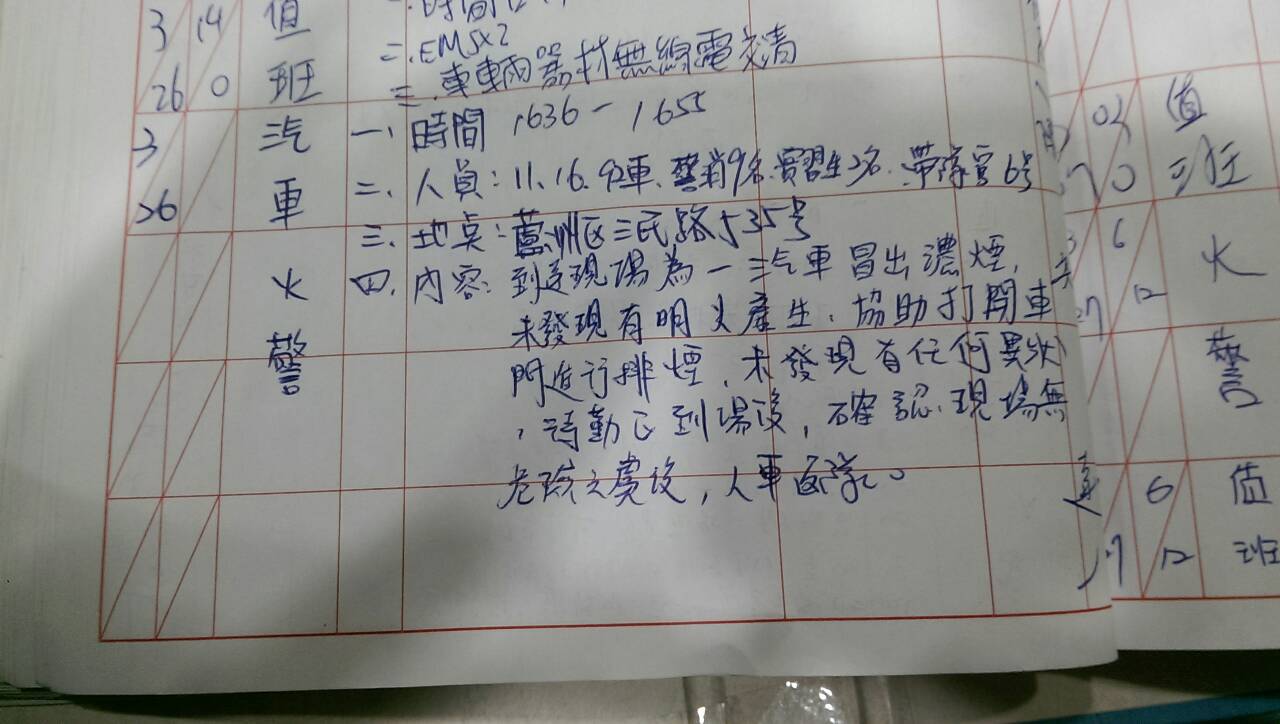 3 14 值
二.EMS×2
26 0 班
三.車輛器材無線電交清
3
26
汽
車
火
警
一、時間 1636-1655
二、人員:11.16.92車、警消9名.實習生2名.帶隊官6号
三、地点:蘆洲区三民路535号
四、內容:到達現場為一汽車冒出濃煙,
未發現有明火產生,協助打開車
門進行排煙,未發現有任何異狀
,待勤区到場後,確認現場無
危險之虞後,人車返隊。
值
班
6 火
12
警
6 值
12 班